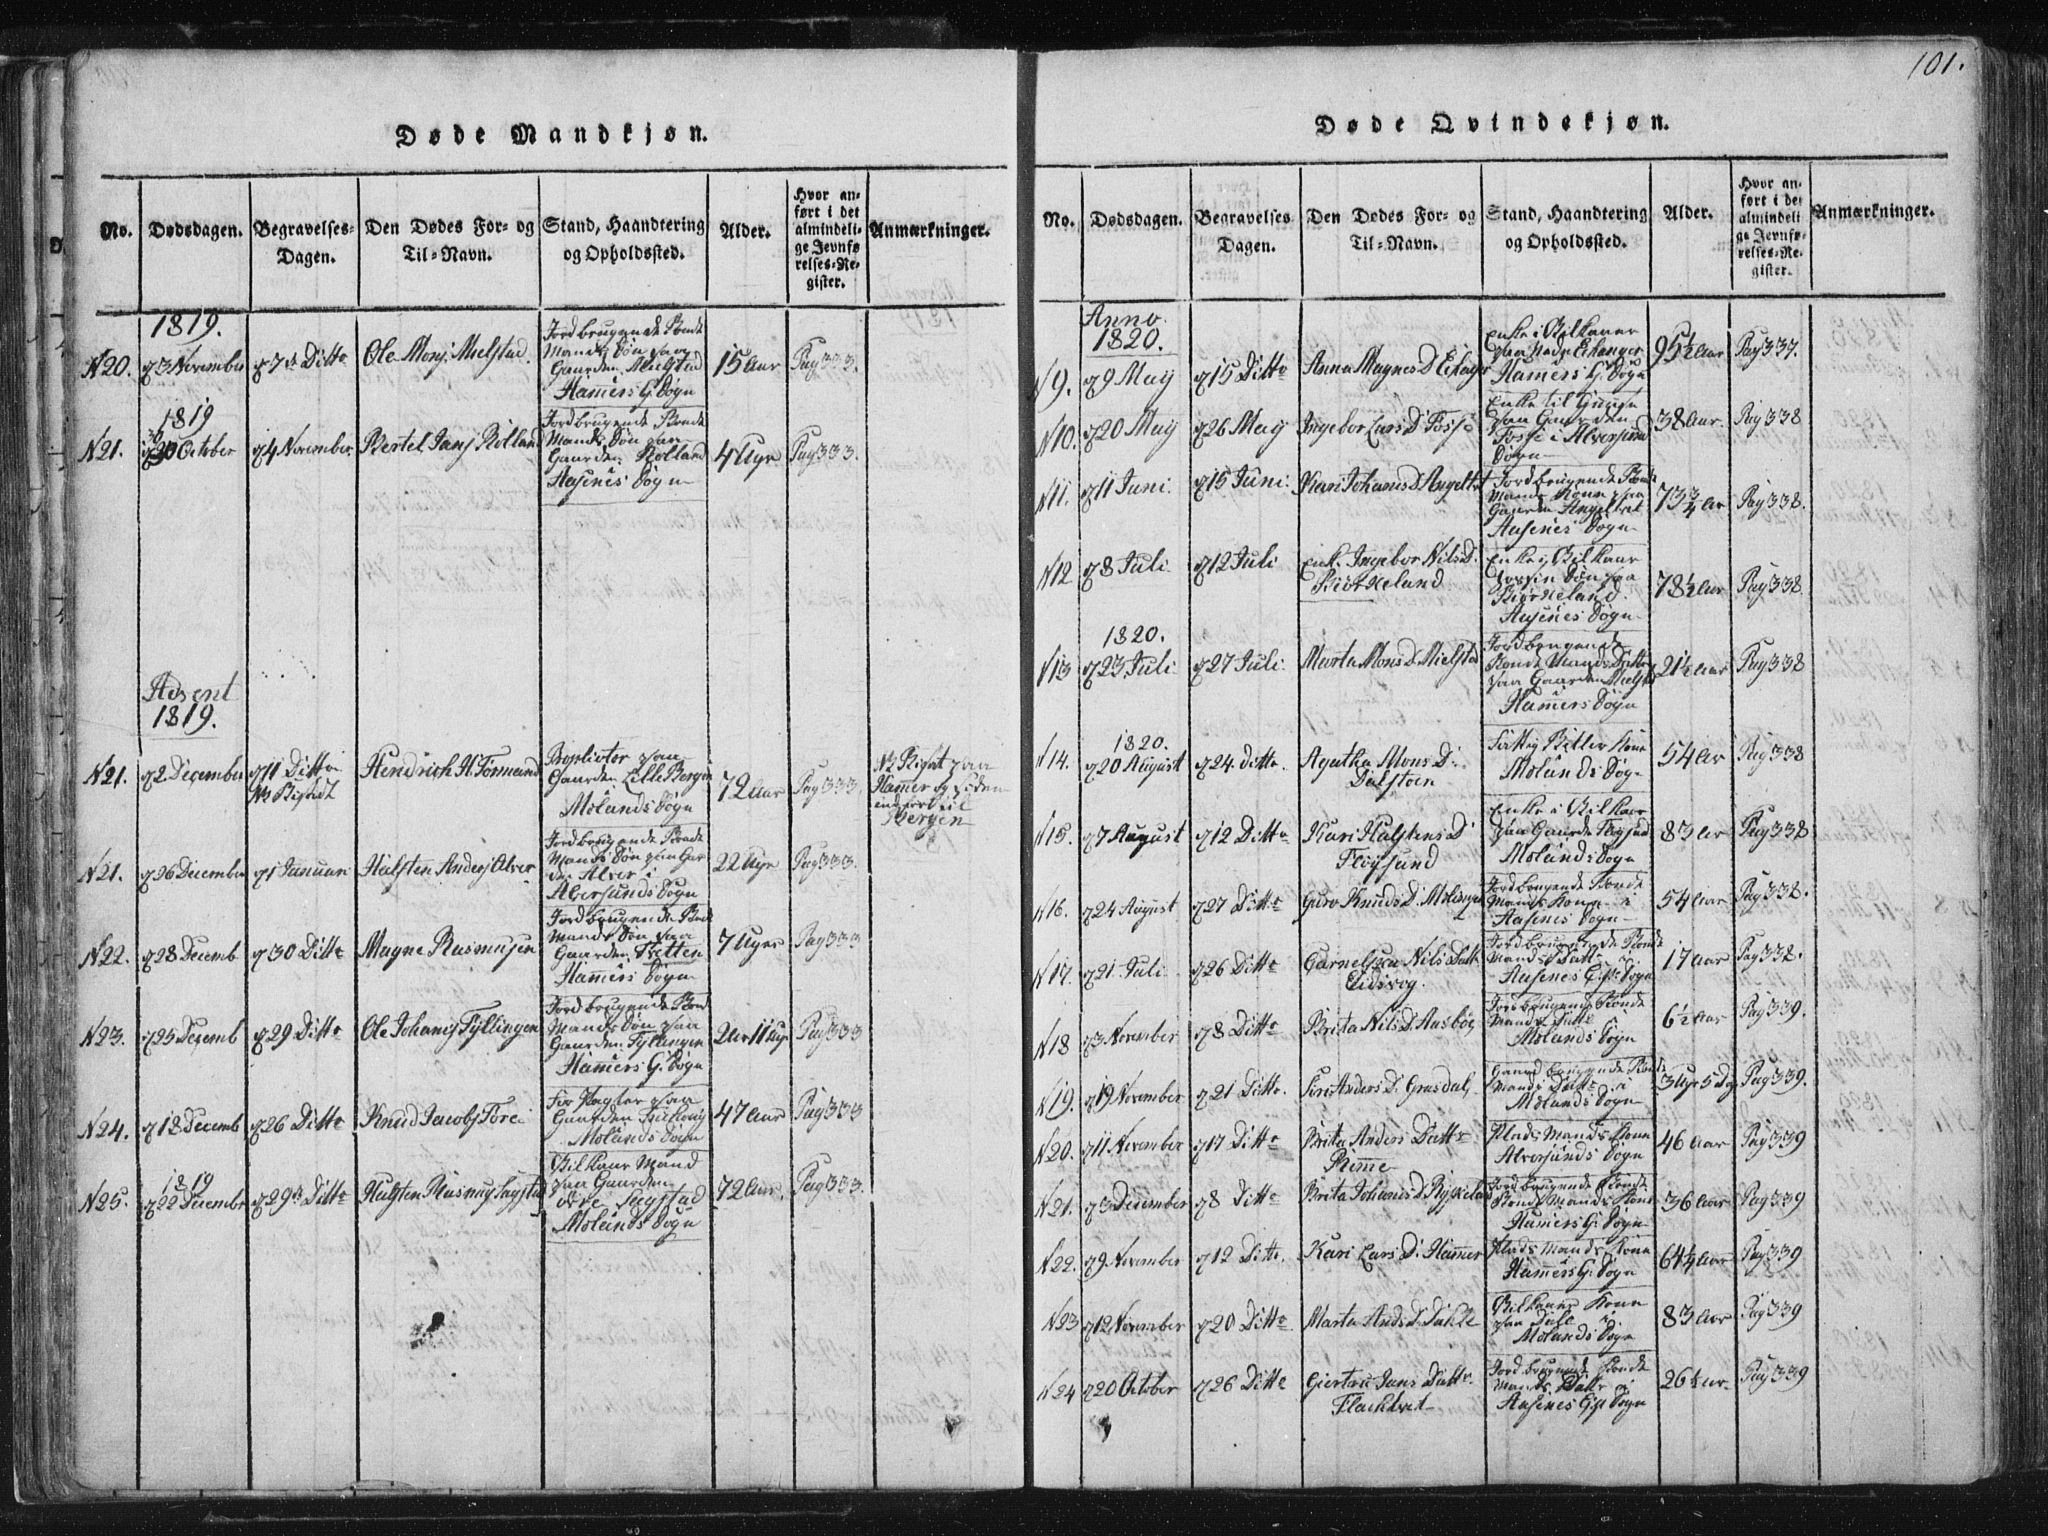 101.
Døde Mandkjøn.
No.
Dødsdagen.
Begravelses-
Dagen.
Den Dødes For- og
Til-Navn.
Stand, Haandtering
og Opholdssted.
Alder.
Hvor an-
ført i det
almindeli-
ge Jevnfø-
relses-Re-
gister.
Anmærkninger.
1819.
N20. 23 November 27de Ditto Ole Monsj Mielstad
Jordbrugende Bonde
Mands Søn paa
Gaarden Mielstad
Hamers G. Sogn
15 Aar Pag 333.
1819
N21. 30 October 24 November Bertel Jansj Rolland
Jordbrugende Bonde
Mands Søn paa
Gaarden Rolland
Aasenes Sogn
4 Uger Pag 333.
Advent
1819.
N21. 22 December 211 Ditto
Hendrich H. Tormand
Gaarden Lille Bergen
Molands Sogn
72 Aar Pag 333.
Hammer og siden
indført til
Bergen
N21. 226 December 21 Januari Halsten Andersj Alver
Jordbrugende Bonde
Mands Søn paa Gar
den Alver i
Alversunds Sogn
22 Uger Pag 333.
N22. 228 Decemb 230 Ditto Magne Rasmusen
Jordbrugende Bonde
Mands Søn paa
Gaarden Tvetten
Hamers Sogn
7 Uger Pag 333
N23. 225 Decemb 229 Ditto Ole Johansj Tyllingen
Jordbrugende Bond
Mands Søn paa
Gaarden Tyllingen
Hamers G. Sogn
Pag 333
N24. 218 Decemb 226 Ditto Knud Jacobsj
paa
Gaarden
Molands Sogn
47 Aar Pag 333
1819
N25. 222 December 229de Ditto Halsten Rasmusj Sagstad
Vilkaar Mand
paa Gaarden
Øvre Sagstad
Molands Sogn
72 Aar. Pag 333.
Døde Qvindekjøn.
No.
Dødsdagen.
Begravelses
Dagen.
Den Dødes For- og
Til-Navn.
Stand, Haandtering
og Opholdssted.
Alder.
Hvor an-
ført i det
almindeli-
ge Jevnfø-
relses-Re-
gister.
Anmærkninger.
Anno
1820.
N9. 29 May 215 Ditto Anna Magnes D. Eikanger
Enke i Vilkaar
paa Eikanger
Hamers G. Sogn
95½ Aar Pag 337.
N10. 220 May 226 May Ingebor Lars D. Fosse
Enke til Huuse
paa Gaarden
Fosse i Alversund
Sogn
38 Aar. Pag 338
N11. 211 Juni. 215 Juni. Kari Johanis D. Angeltvet
Jordbrugende Bonde
Mands Kone paa
Gaarden Angeltvet
Aasenes Sogn
73¾ Aar Pag 338.
N12 28 Juli 212 Juli Enk. Ingebor Nils D.
Biørneland
Enke i Vilkaar
hos sin Søn paa
Biørneland
Aasenes Sogn
78½ Aar Pag 338
1820.
N13 223 Juli 227 Juli Marta Mons D. Mielstad
Jordbrugende
Bonde Mands Datter
paa Gaarden Mielstad
i
Hamers Sogn
21½ Aar Pag 338
1820.
N14. 220 August 224. ditto. Agatha Mons D.
Dalstøen
Fattig Betler Kone
Molands Sogn
54 Ar Pag 338
N15. 27 August 212 Ditto Kari Halstens D
Fløysund
Enke i Vilkaar
paa Gaarde Fløysund
Molands Sogn
83 Ar Pag 338
N16. 224 August 227 Ditto Guro Knuds D.
Jordbrugende Bonde
Mands Kone i
Aasenes Sogn
54 Aar Pag 338.
N17. 221 Juli 226 Ditto Nils Datt
Eidsvog.
Jordbrugende Bonde
Mands Datt i
Aasenes Sogn
17 Aar Pag 338.
N18 23 November 28 Ditto Brita Nils D. Aasbøe
Jordbrugende Bonde
Mands Datte i
Molands Sogn
6½ Aar Pag 339.
N19. 219 November 221 Ditto Anders D. Grasdal
Gaard brugende Bonde
Mands Datte i
Molands Sogn
3 Uge 5 Dg Pag 339.
N20. 211 November 217 Ditto Brita Anders Datte
Rimme
Plads Mands Kone
Alversunds Sogn
46 Aar Pag 339
N21. 23 December 28 Ditto Brita Johanis D.
Jordbrugende Bonde
Mands Kone
Hamers G. Sogn
36 Aar Pag 339
N22. 29 November 212 Ditto. Kari Lars D. Hamer
Plads Mands Kone
Hamers G. Sogn
64¼ Aar Pag 339
N23 212 November 220 Ditto Marta Ands D. Dahle
Vilkaars Kone
paa Dale i
Molands Sogn
83 Aar Pag 339
N24 220 October 226 Ditto Giertru Jans Datte
Flachtvet
Jordbrugende Bonde
Mands Datte i
Aasenes Sogn
26½ Ar. Pag 339